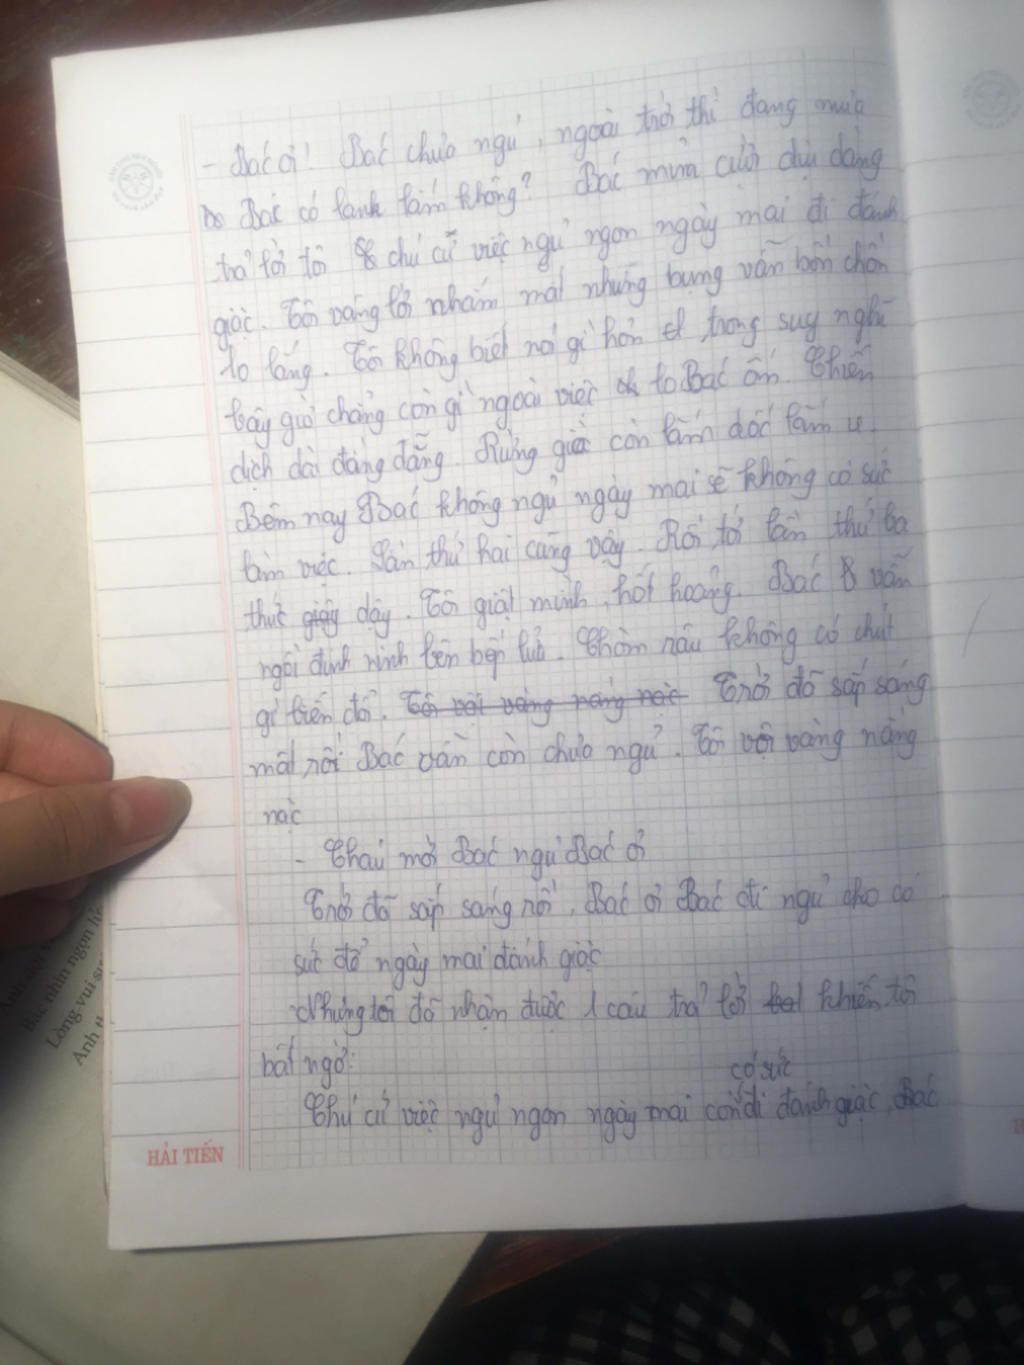 - Bác ơi! Bác chưa ngủ, ngoài trời thì đang mưa
Bác có lạnh lắm không? Bác mỉm cười dịu dàng
trả lời tôi chú cứ việc ngủ ngon ngày mai đi đánh
giặc. Tôi vâng lời nhắm mắt nhưng bụng vẫn bồn chồn
lo lắng. Tôi không biết nói gì hơn trong suy nghĩ
bây giờ chẳng còn gì ngoài việc lo Bác ốm. Chiến
dịch dài đằng đẵng. Rừng còn lắm dốc lắm ụ.
Đêm nay Bác không ngủ ngày mai sẽ không có sức
làm việc. Lần thứ hai cũng vậy. Rồi tới lần thứ ba
thức dậy. Tôi giật mình, hốt hoảng. Bác vẫn
ngồi đinh ninh bên bếp lửa. Chòm râu không có chút
gì biến đổi. Tôi vội vàng nằng nặc Trời đã sắp sáng
mất rồi Bác vẫn còn chưa ngủ. Tôi vội vàng nằng
nặc
- Thưi mời Bác ngủ Bác ơi
Trời đã sắp sáng rồi, Bác ơi Bác đi ngủ cho có
sức để ngày mai đánh giặc
Nhưng tôi đã nhận được 1 câu trả lời khiến tôi
bất ngờ:
có sức
Chú cứ việc ngủ ngon ngày mai còn đi đánh giặc, Bác
HẢI TIẾN
Bác nhìn ngọn
Lòng vui
Anh